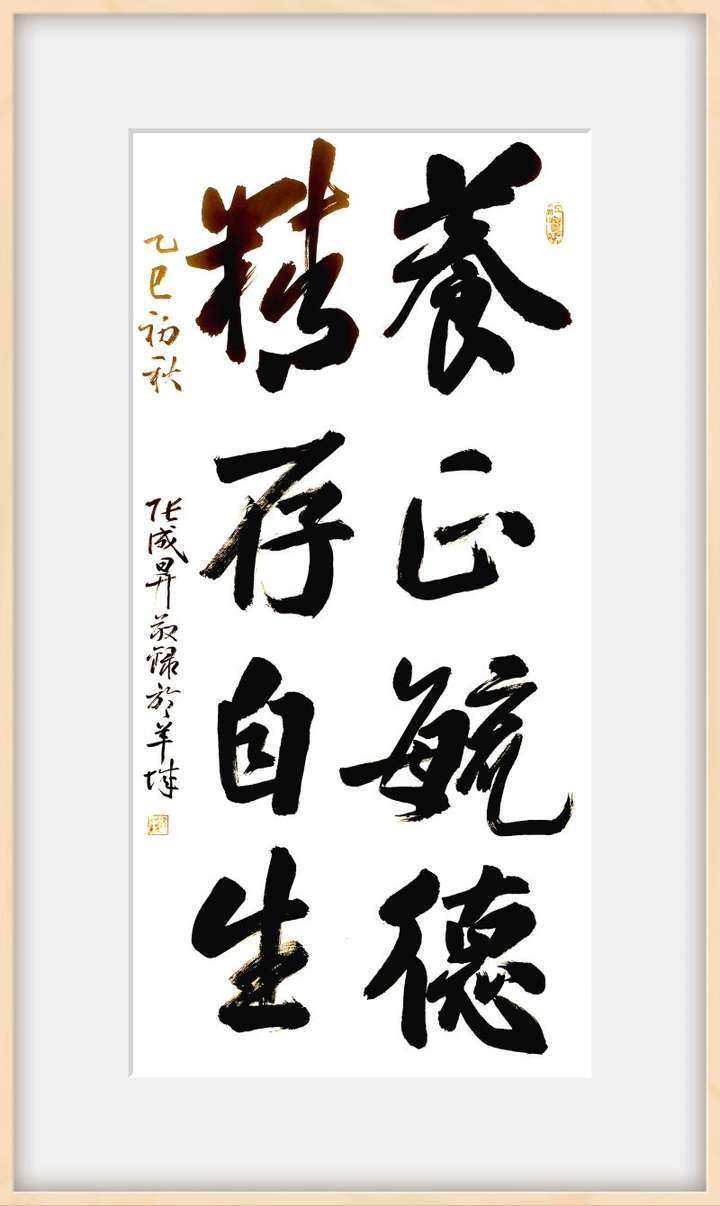 養正毓德
精存自生
乙巳初秋
张成昇敬録於羊城